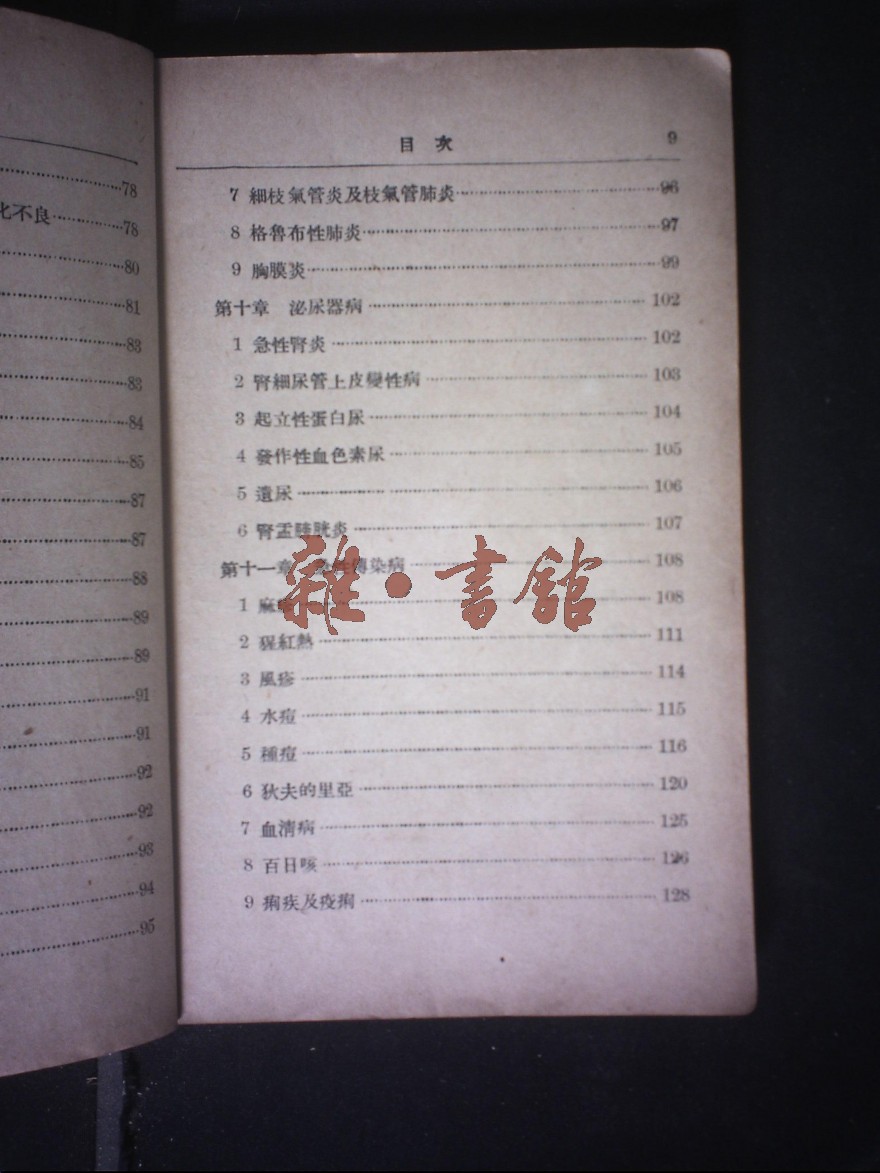 78
化不良…………78
80
81
83
83
84
85
87
87
88
89
89
91
91
92
92
93
94
95
目次 9
7 細枝氣管炎及枝氣管肺炎…………96
8 格魯布性肺炎…………97
9 胸膜炎…………99
第十章 泌尿器病…………102
1 急性腎炎…………102
2 腎細尿管上皮變性病…………103
3 起立性蛋白尿…………104
4 發作性血色素尿…………105
5 遺尿…………106
6 腎盂膀胱炎…………107
第十一章 急性傳染病…………108
1 麻疹…………108
2 猩紅熱…………111
3 風疹…………114
4 水痘…………115
5 種痘…………116
6 狄夫的里亞…………120
7 血清病…………125
8 百日咳…………126
9 痢疾及疫痢…………128
雜·書館